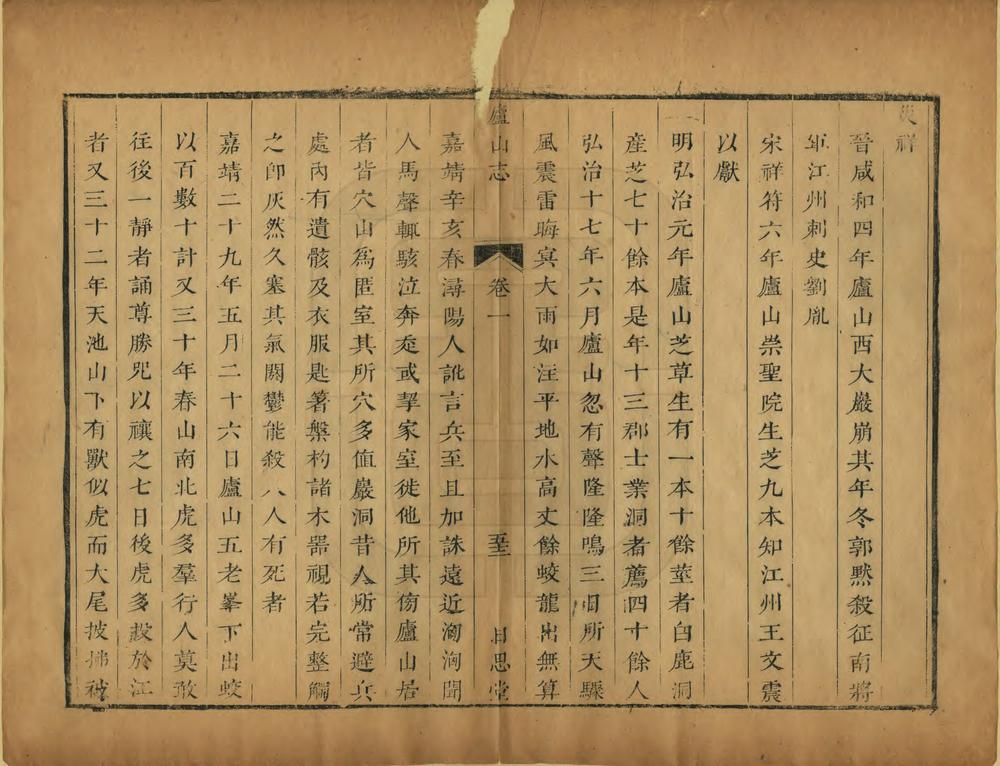 災祥
晉咸和四年廬山西大巖崩其年冬郭黙殺征南將
軍江州刺史劉胤
宋祥符六年廬山崇聖院生芝九本知江州王文震
以獻
明弘治元年廬山芝草生有一本十餘莖者白鹿洞
産芝七十餘本是年十三郡士業洞者薦四十餘人
弘治十七年六月廬山忽有聲隆隆鳴三日所天驟
風震雷晦冥大雨如注平地水高丈餘蛟龍出無算
廬山志 卷一 順思堂
嘉靖辛亥春潯陽人訛言兵至且加誅遠近洶洶聞
人馬聲輒駭泣奔走或挈家室徙他所其傍廬山居
者皆穴山爲匿室其所穴多值巖洞昔人所常避兵
處內有遺骸及衣服匙箸槃杓諸木器視若完整觸
之卽灰然久塞其氣閼鬱能殺人人有死者
嘉靖二十九年五月二十六日廬山五老峯下出蛟
以百數十計又三十年春山南北虎多羣行人莫敢
往後一靜者誦尊勝咒以禳之七日後虎多殺於江
者又三十二年天池山下有獸似虎而大尾披拂被